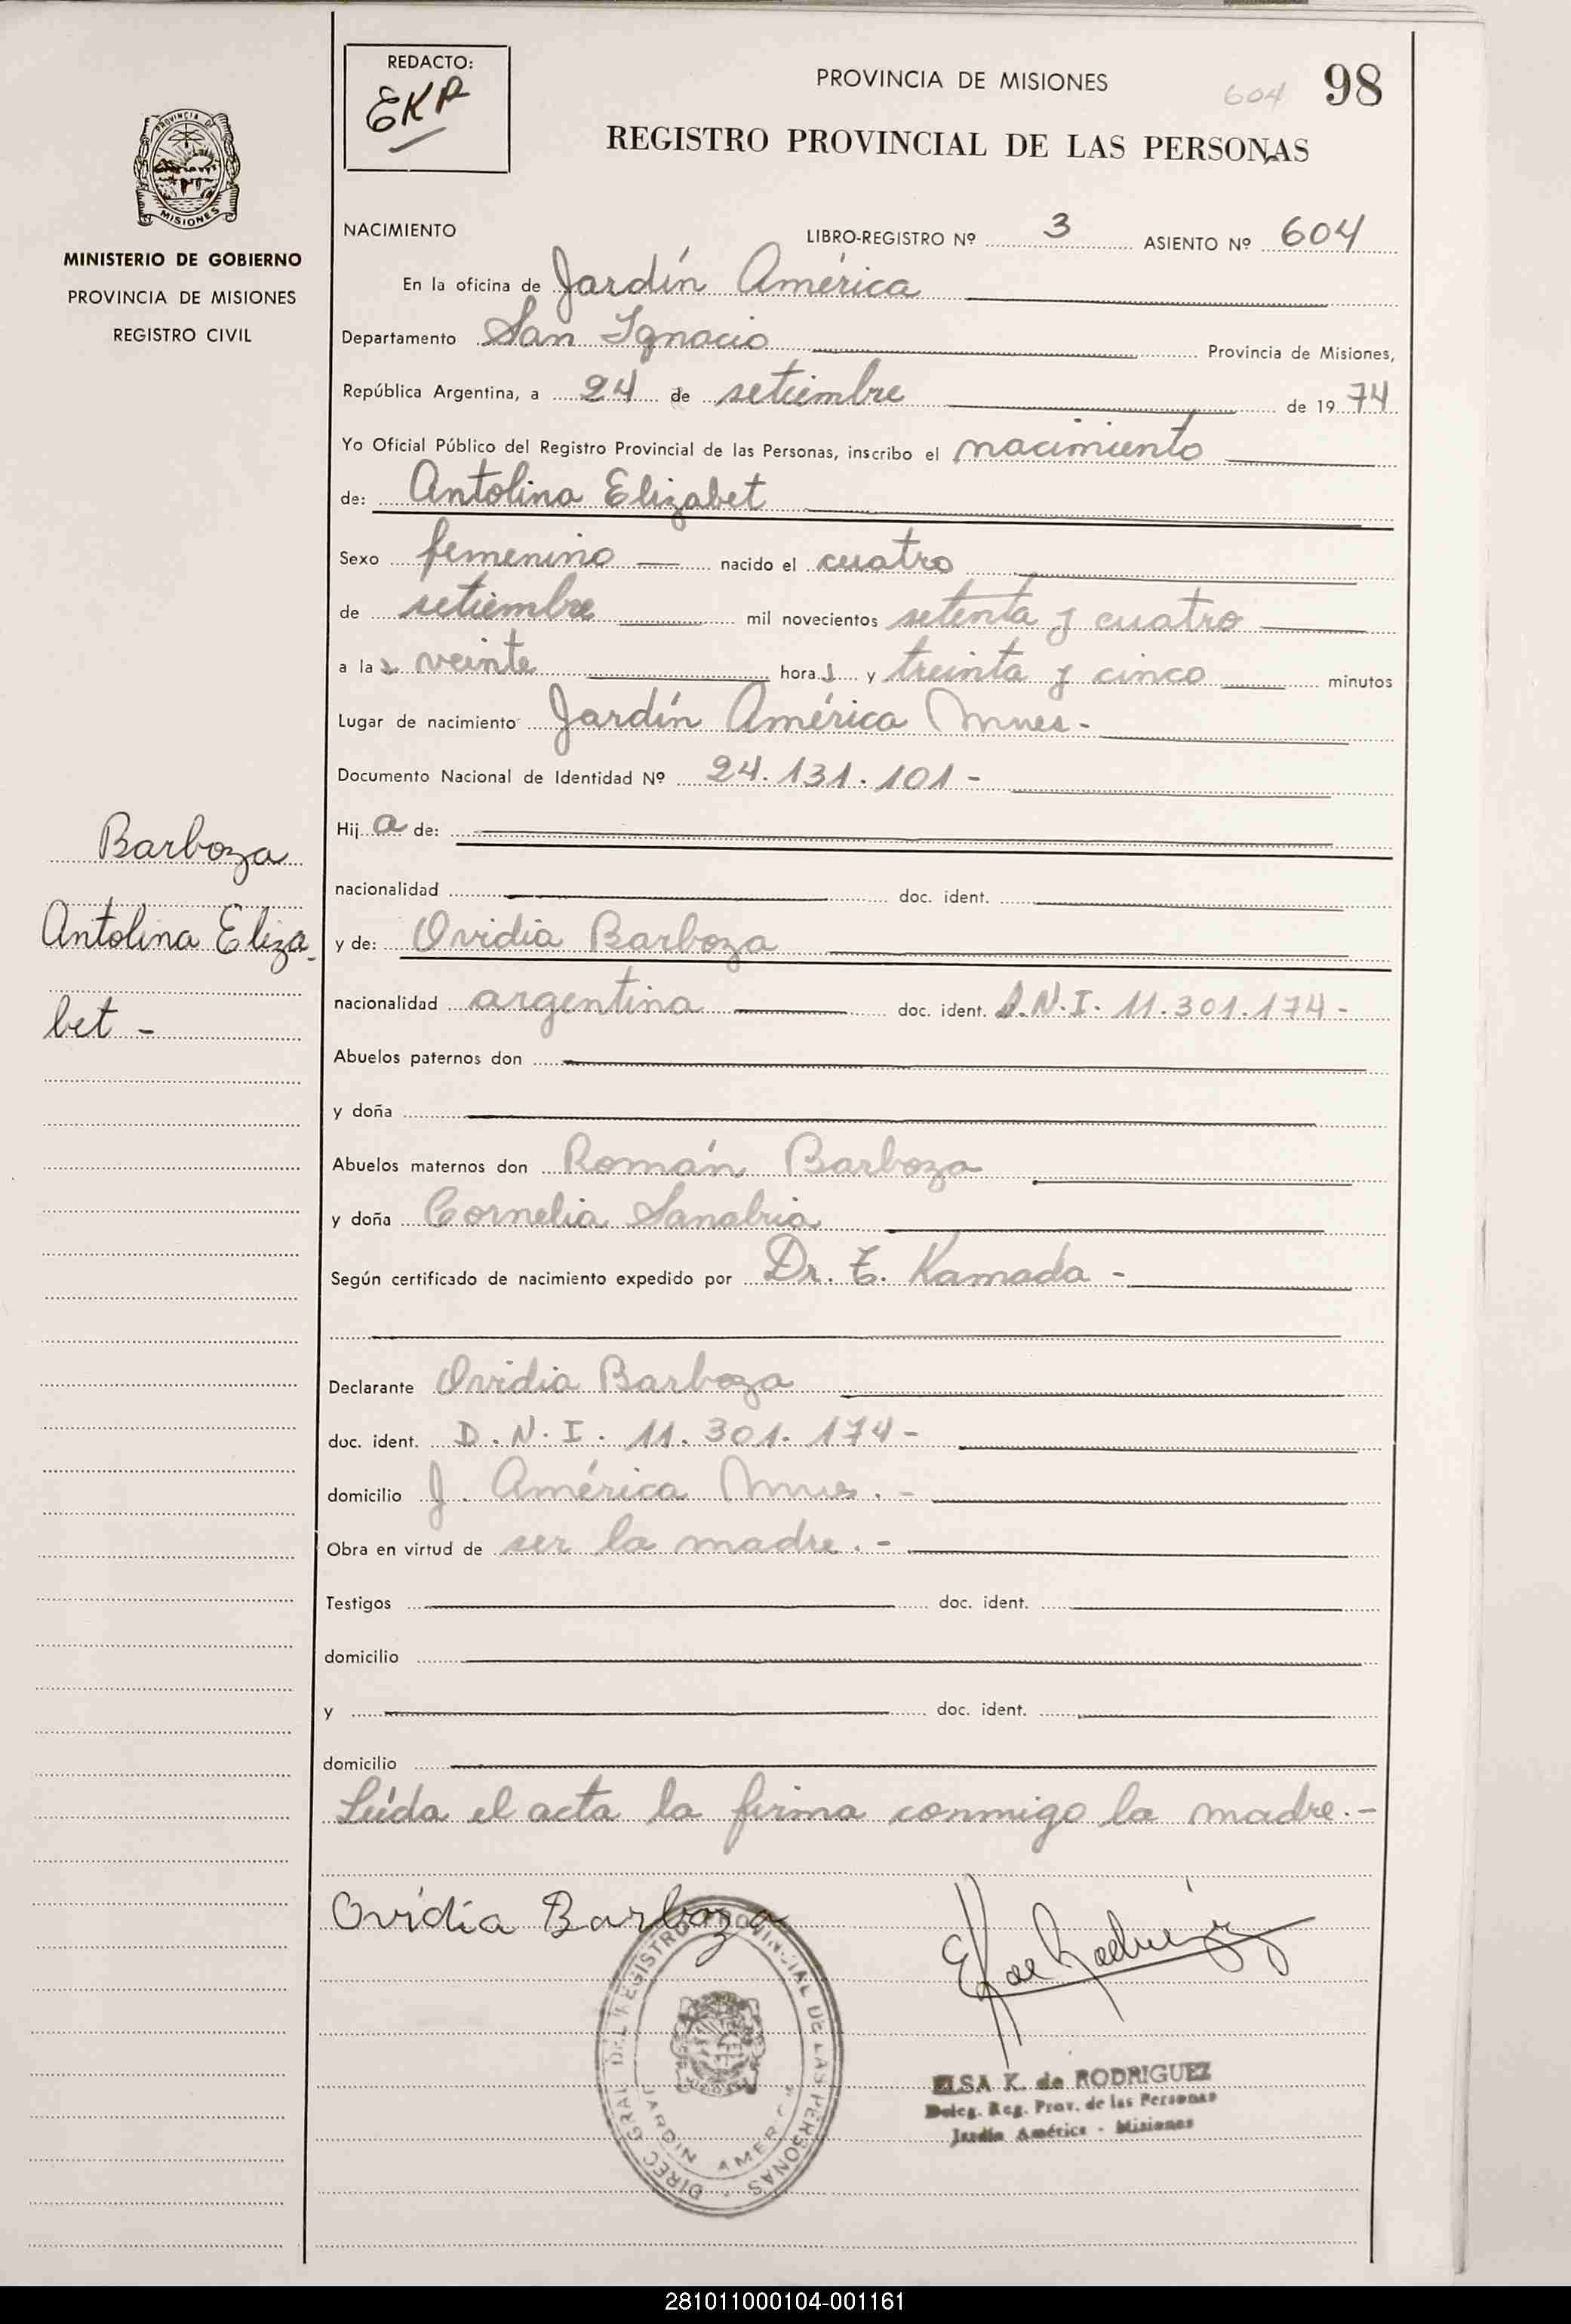 REDACTO:
EKR
PROVINCIA DE MISIONES
604 98
REGISTRO PROVINCIAL DE LAS PERSONAS
PROVINCIA DE
MISIONES
MINISTERIO DE GOBIERNO
PROVINCIA DE MISIONES
REGISTRO CIVIL
NACIMIENTO LIBRO-REGISTRO Nº 3 ASIENTO Nº 604
En la oficina de Jardín América
Departamento San Ignacio Provincia de Misiones,
República Argentina, a 24 de setiembre de 19 74
Yo Oficial Público del Registro Provincial de las Personas, inscribo el nacimiento
de: Antolina Elizabet
Sexo femenino — nacido el cuatro
de setiembre mil novecientos setenta y cuatro
a las veinte horas y treinta y cinco minutos
Lugar de nacimiento Jardín América Mnes-
Documento Nacional de Identidad Nº 24.131.101-
Hija de:
nacionalidad doc. ident.
Barboza
Antolina Eliza
bet -
y de: Ovidia Barboza
nacionalidad argentina doc. ident. D.N.I. 11.301.174-
Abuelos paternos don
y doña
Abuelos maternos don Román Barboza
y doña Cornelia Sanabria
Según certificado de nacimiento expedido por Dr. T. Kamada -
Declarante Ovidia Barboza
doc. ident. D.N.I. 11.301.174-
domicilio J. América Mnes.-
Obra en virtud de ser la madre.-
Testigos doc. ident.
domicilio
y doc. ident.
domicilio
Leída el acta la firma conmigo la madre.-
Ovidia Barboza
DIREC. GRAL. DEL REGISTRO PROVINCIAL DE LAS PERSONAS
JARDIN AMERICA
ELSA K. de RODRIGUEZ
Deleg. Reg. Prov. de las Personas
Jardín América - Misiones
281011000104-001161